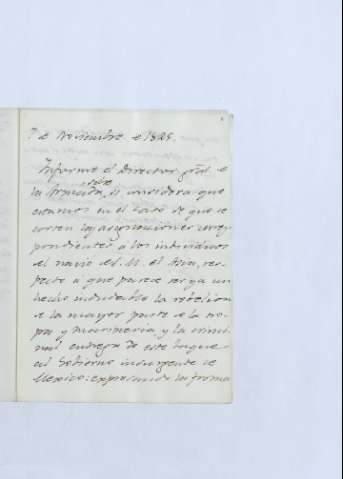 7 de Noviembre de 1825
Informe el Director gral. de
la Armada, si considera que
estamos en el caso de que se
corten las asignaciones corres-
pondientes a los individuos
del navio de S. M. el Asia, res-
pecto a que parece ser ya un
hecho indudable la rebelion
de la mayor parte de la tro-
pa y marineria, y la crimi-
nal entrega de este buque
al Gobierno insurgente de
Mexico: expresando la forma